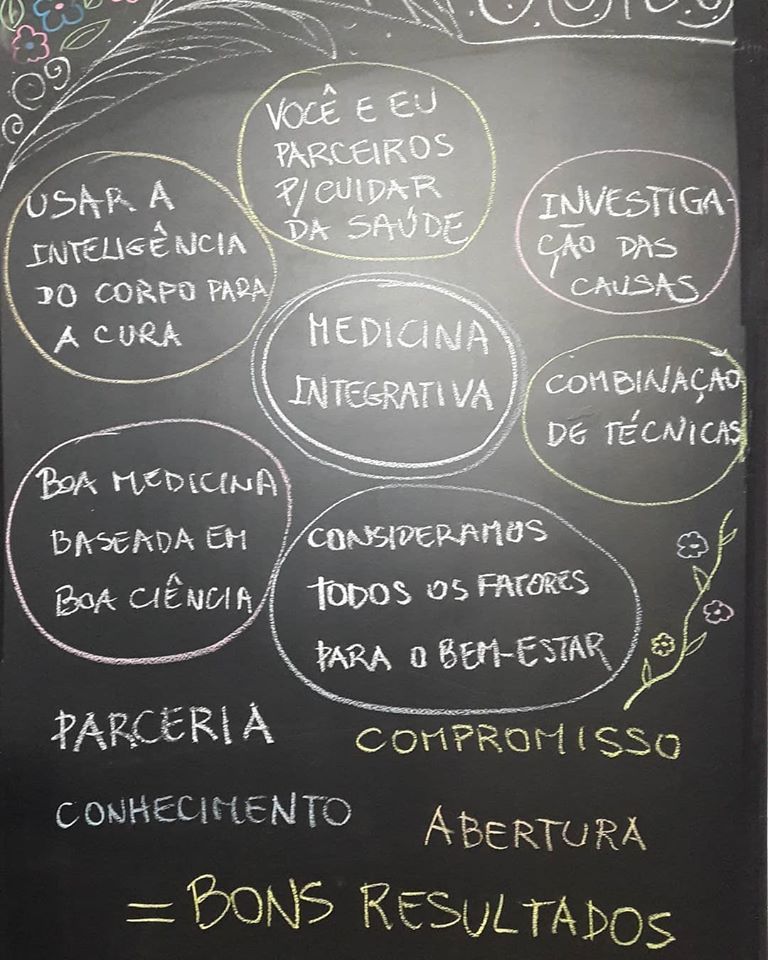 VOCÊ E EU
PARCEIROS
P/ CUIDAR
DA SAÚDE
USAR A
INTELIGÊNCIA
DO CORPO PARA
A CURA
INVESTIGA-
ÇÃO DAS
CAUSAS
MEDICINA
INTEGRATIVA
COMBINAÇÃO
DE TÉCNICAS
BOA MEDICINA
BASEADA EM
BOA CIÊNCIA
CONSIDERAMOS
TODOS OS FATORES
PARA O BEM-ESTAR
PARCERIA
COMPROMISSO
CONHECIMENTO
ABERTURA
= BONS RESULTADOS